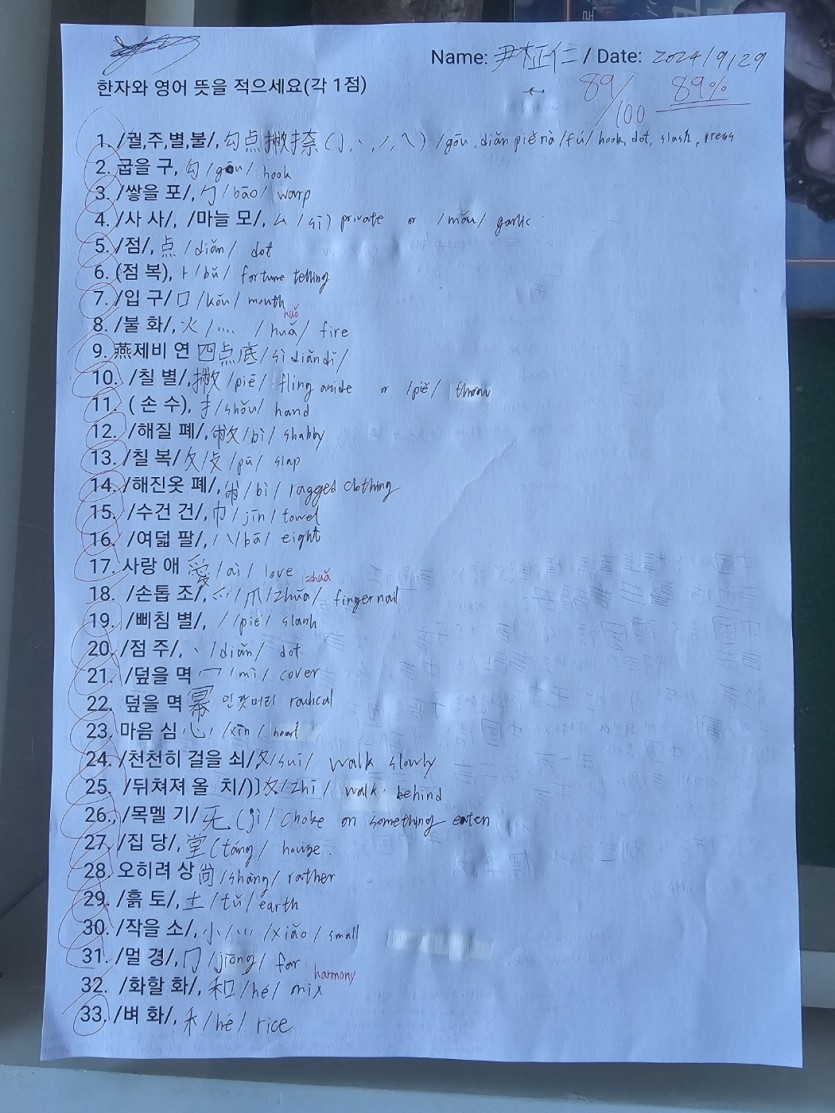 Name: 尹柾仁 / Date: 2024/9/29
한자와 영어 뜻을 적으세요(각 1점)
89/100 89%
1. /궐,주,별,불/, 勾点撇捺 (亅, 丶, 丿, 乀) /gōu, diǎn piě nà /fú/ hook, dot, slash, press
2. 굽을 구, 勾 /gōu/ hook
3. /쌓을 포/, 勹 /bāo/ warp
4. /사 사/, /마늘 모/, 厶 /sī/ private or /mǒu/ garlic
5. /점/, 点 /diǎn/ dot
6. (점 복), 卜 /bǔ/ fortune telling
7. /입 구/ 口 /kǒu/ mouth
8. /불 화/, 火 / 灬 /huǎ/ fire
huǒ
9. 燕제비 연 四点底 /sì diǎn dǐ/
10. /칠 별/, 撇 /piē/ fling aside or /piě/ throw
11. ( 손 수), 扌/shǒu/ hand
12. /해질 폐/, 敝 /bì/ shabby
13. /칠 복/ 攵/攴 /pū/ slap
14. /해진옷 폐/, 㡀 /bì/ ragged clothing
15. /수건 건/, 巾 /jīn/ towel
16. /여덟 팔/, 八 /bā/ eight
17. 사랑 애 愛 /ài/ love
18. /손톱 조/, 爫 / 爪 /zhǔa/ fingernail
zhuǎ
19. /삐침 별/, 丿 /piě/ slash
20. /점 주/, 丶 /diǎn/ dot
21. /덮을 멱 冖 /mì/ cover
22. 덮을 멱 冪 민갓머리 radical
23. 마음 심 心 /xīn/ heart
24. /천천히 걸을 쇠/ 夊/suī/ walk slowly
25. /뒤쳐져 올 치/)] 夂/zhǐ/ walk behind
26. /목멜 기/ 旡 (jì/ choke on something eaten
27. /집 당/, 堂 (táng/ house.
28. 오히려 상 尙 /shàng/ rather
29. /흙 토/, 土 /tǔ/ earth
30. /작을 소/, 小 / ⺌ /xiǎo/ small
31. /멀 경/, 冂 /jiōng/ far
32. /화할 화/, 和 /hé/ mix
harmony
33. /벼 화/, 禾 /hé/ rice